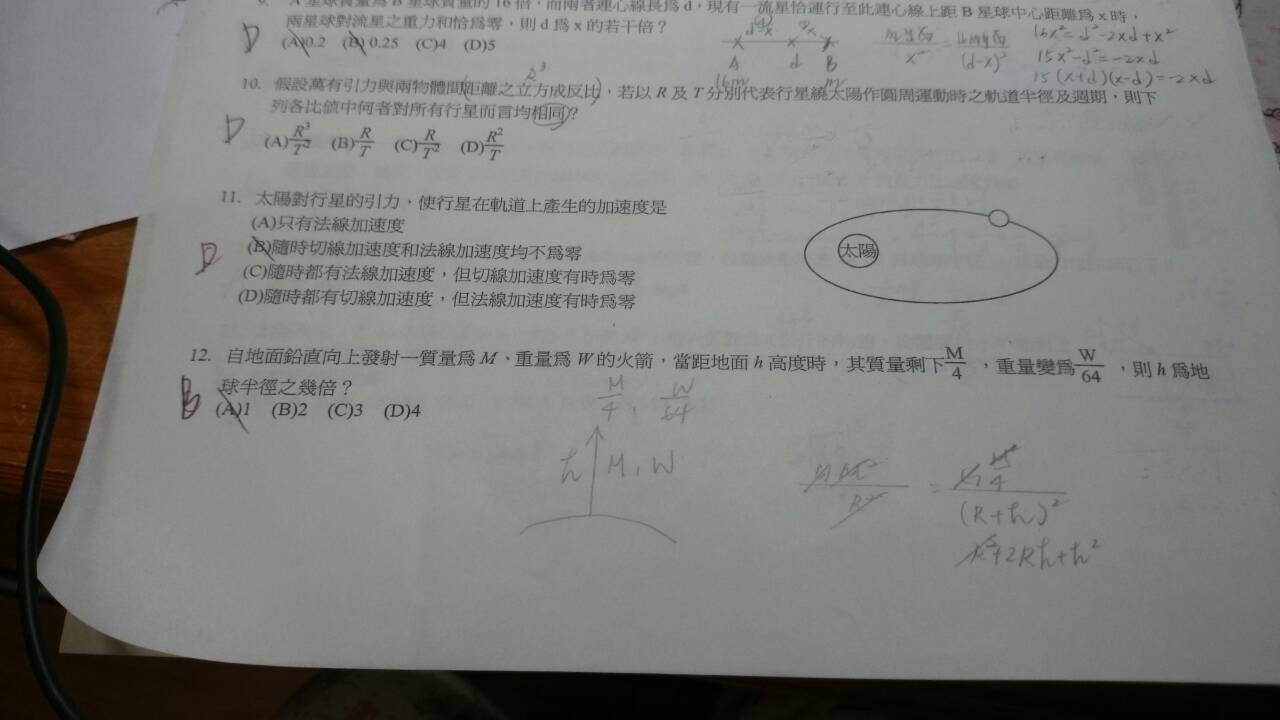 9. A星球質量為B星球質量的16倍,而兩者連心線長為d,現有一流星恰運行至此連心線上距B星球中心距離為x時,
兩星球對流星之重力和恰為零,則d為x的若干倍?
D (A)0.2 (B)0.25 (C)4 (D)5
d-x x
A d B
16m m
(d-x)²
16x² = d²-2xd+x²
15x²-d² = -2xd
15(x+d)(x-d) = -2xd
R³
10. 假設萬有引力與兩物體間(距離之立方成反比),若以R及T分別代表行星繞太陽作圓周運動時之軌道半徑及週期,則下
列各比值中何者對所有行星而言均相同?
D (A)R³/T² (B)R/T (C)R/T² (D)R²/T
11. 太陽對行星的引力,使行星在軌道上產生的加速度是
(A)只有法線加速度
D (B)隨時切線加速度和法線加速度均不為零
(C)隨時都有法線加速度,但切線加速度有時為零
(D)隨時都有切線加速度,但法線加速度有時為零
太陽
12. 自地面鉛直向上發射一質量為M、重量為W的火箭,當距地面h高度時,其質量剩下M/4,重量變為W/64,則h為地
球半徑之幾倍?
B (A)1 (B)2 (C)3 (D)4
M/4, W/64
h M, W
R² = 4
(R+h)²
R²+2Rh+h²